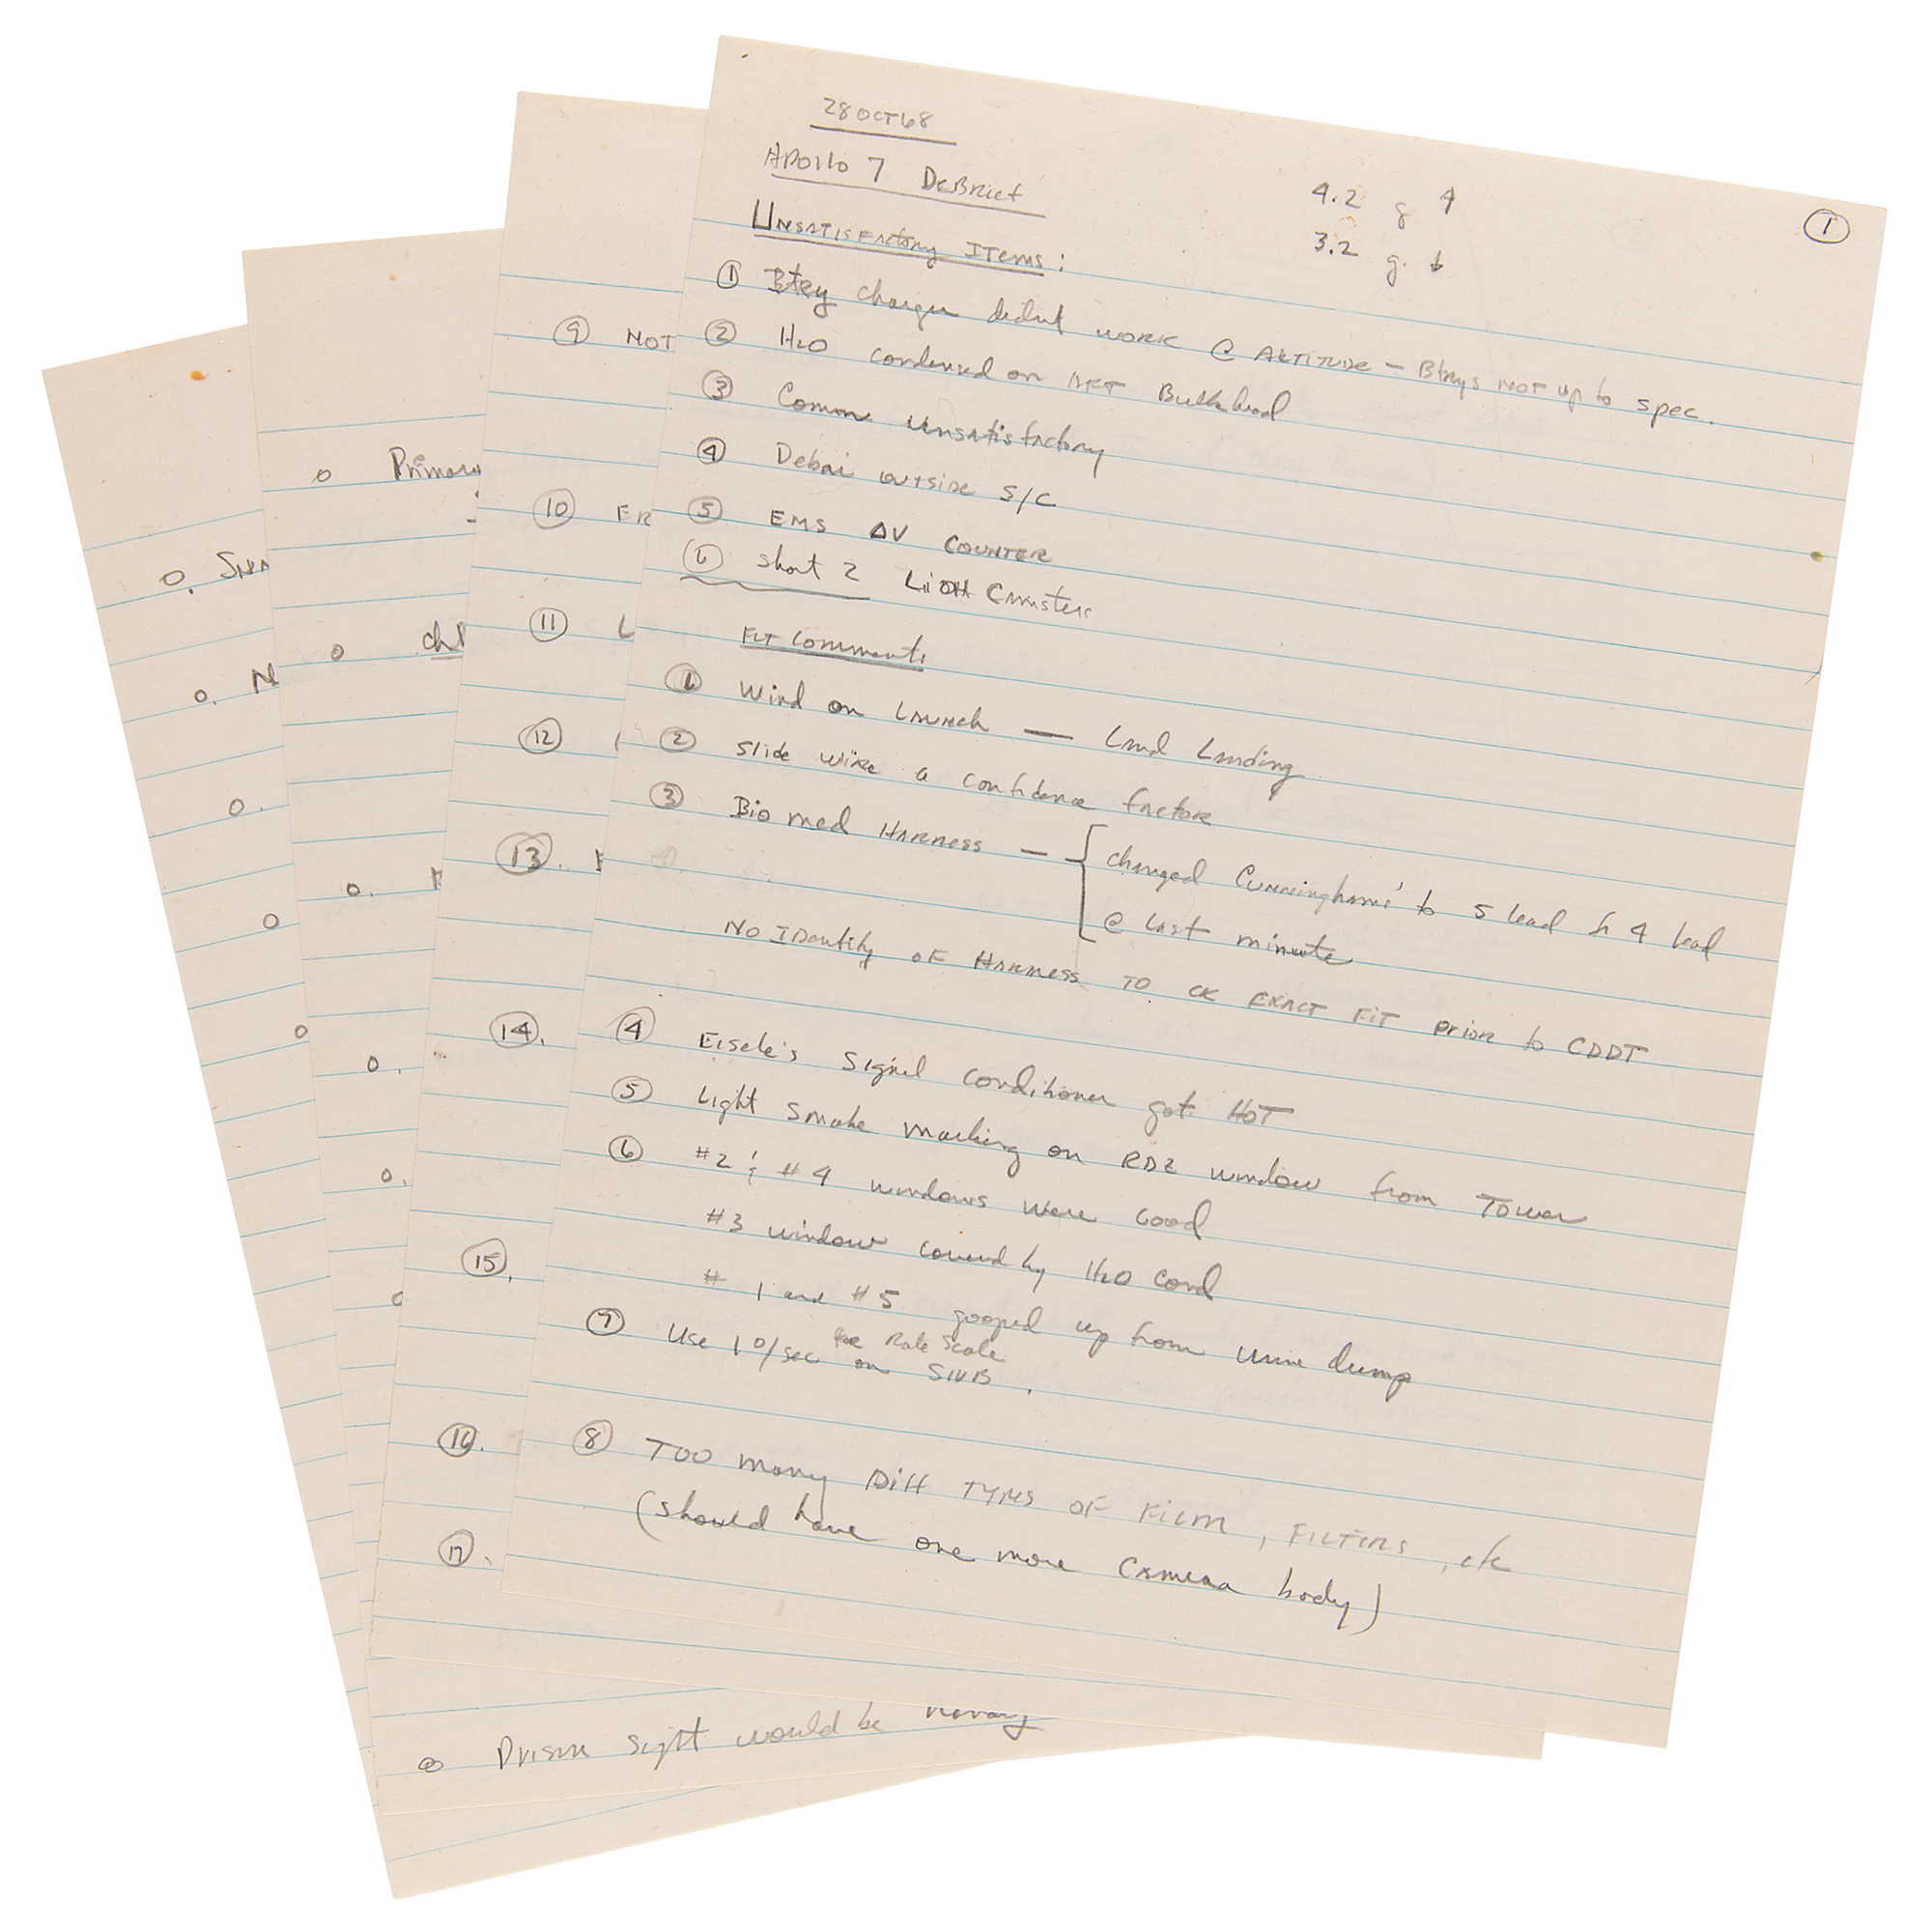 28 OCT 68
Apollo 7 DeBrief
4.2 g ↑
3.2 g. ↓
1
Unsatisfactory Items:
① Btry charger didnt work @ Altitude – Btrys not up to spec.
② H2O condensed on AFT Bulkhead
③ Comm Unsatisfactory
④ Debri outside S/C
⑤ EMS ΔV Counter
⑥ Short 2 LiOH Canisters
FLT Comments
① Wind on Launch — Land Landing
② Slide wire a confidence factor
③ Bio med Harness — { changed Cunningham's to 5 lead fr 4 lead
@ last minute
No Identity of Harness to ck exact fit prior to CDDT
④ Eisele's Signal Conditioner got HOT
⑤ Light smoke marking on RDZ window from Tower
⑥ #2 & #4 windows were Good
#3 window covered by H2O Cond
#1 and #5 gooped up from urine dump
⑦ Use 1°/sec for Rate Scale
on SIVB.
⑧ Too many Diff Types of Film, Filters, etc
(should have one more Camera body)
⑨ NOT
⑩
⑪ L
⑫
⑬.
⑭.
⑮.
⑯.
⑰.
o Primary
o
o.
o.
o.
o Prism sight would be
o.
o. N
o.
o
o